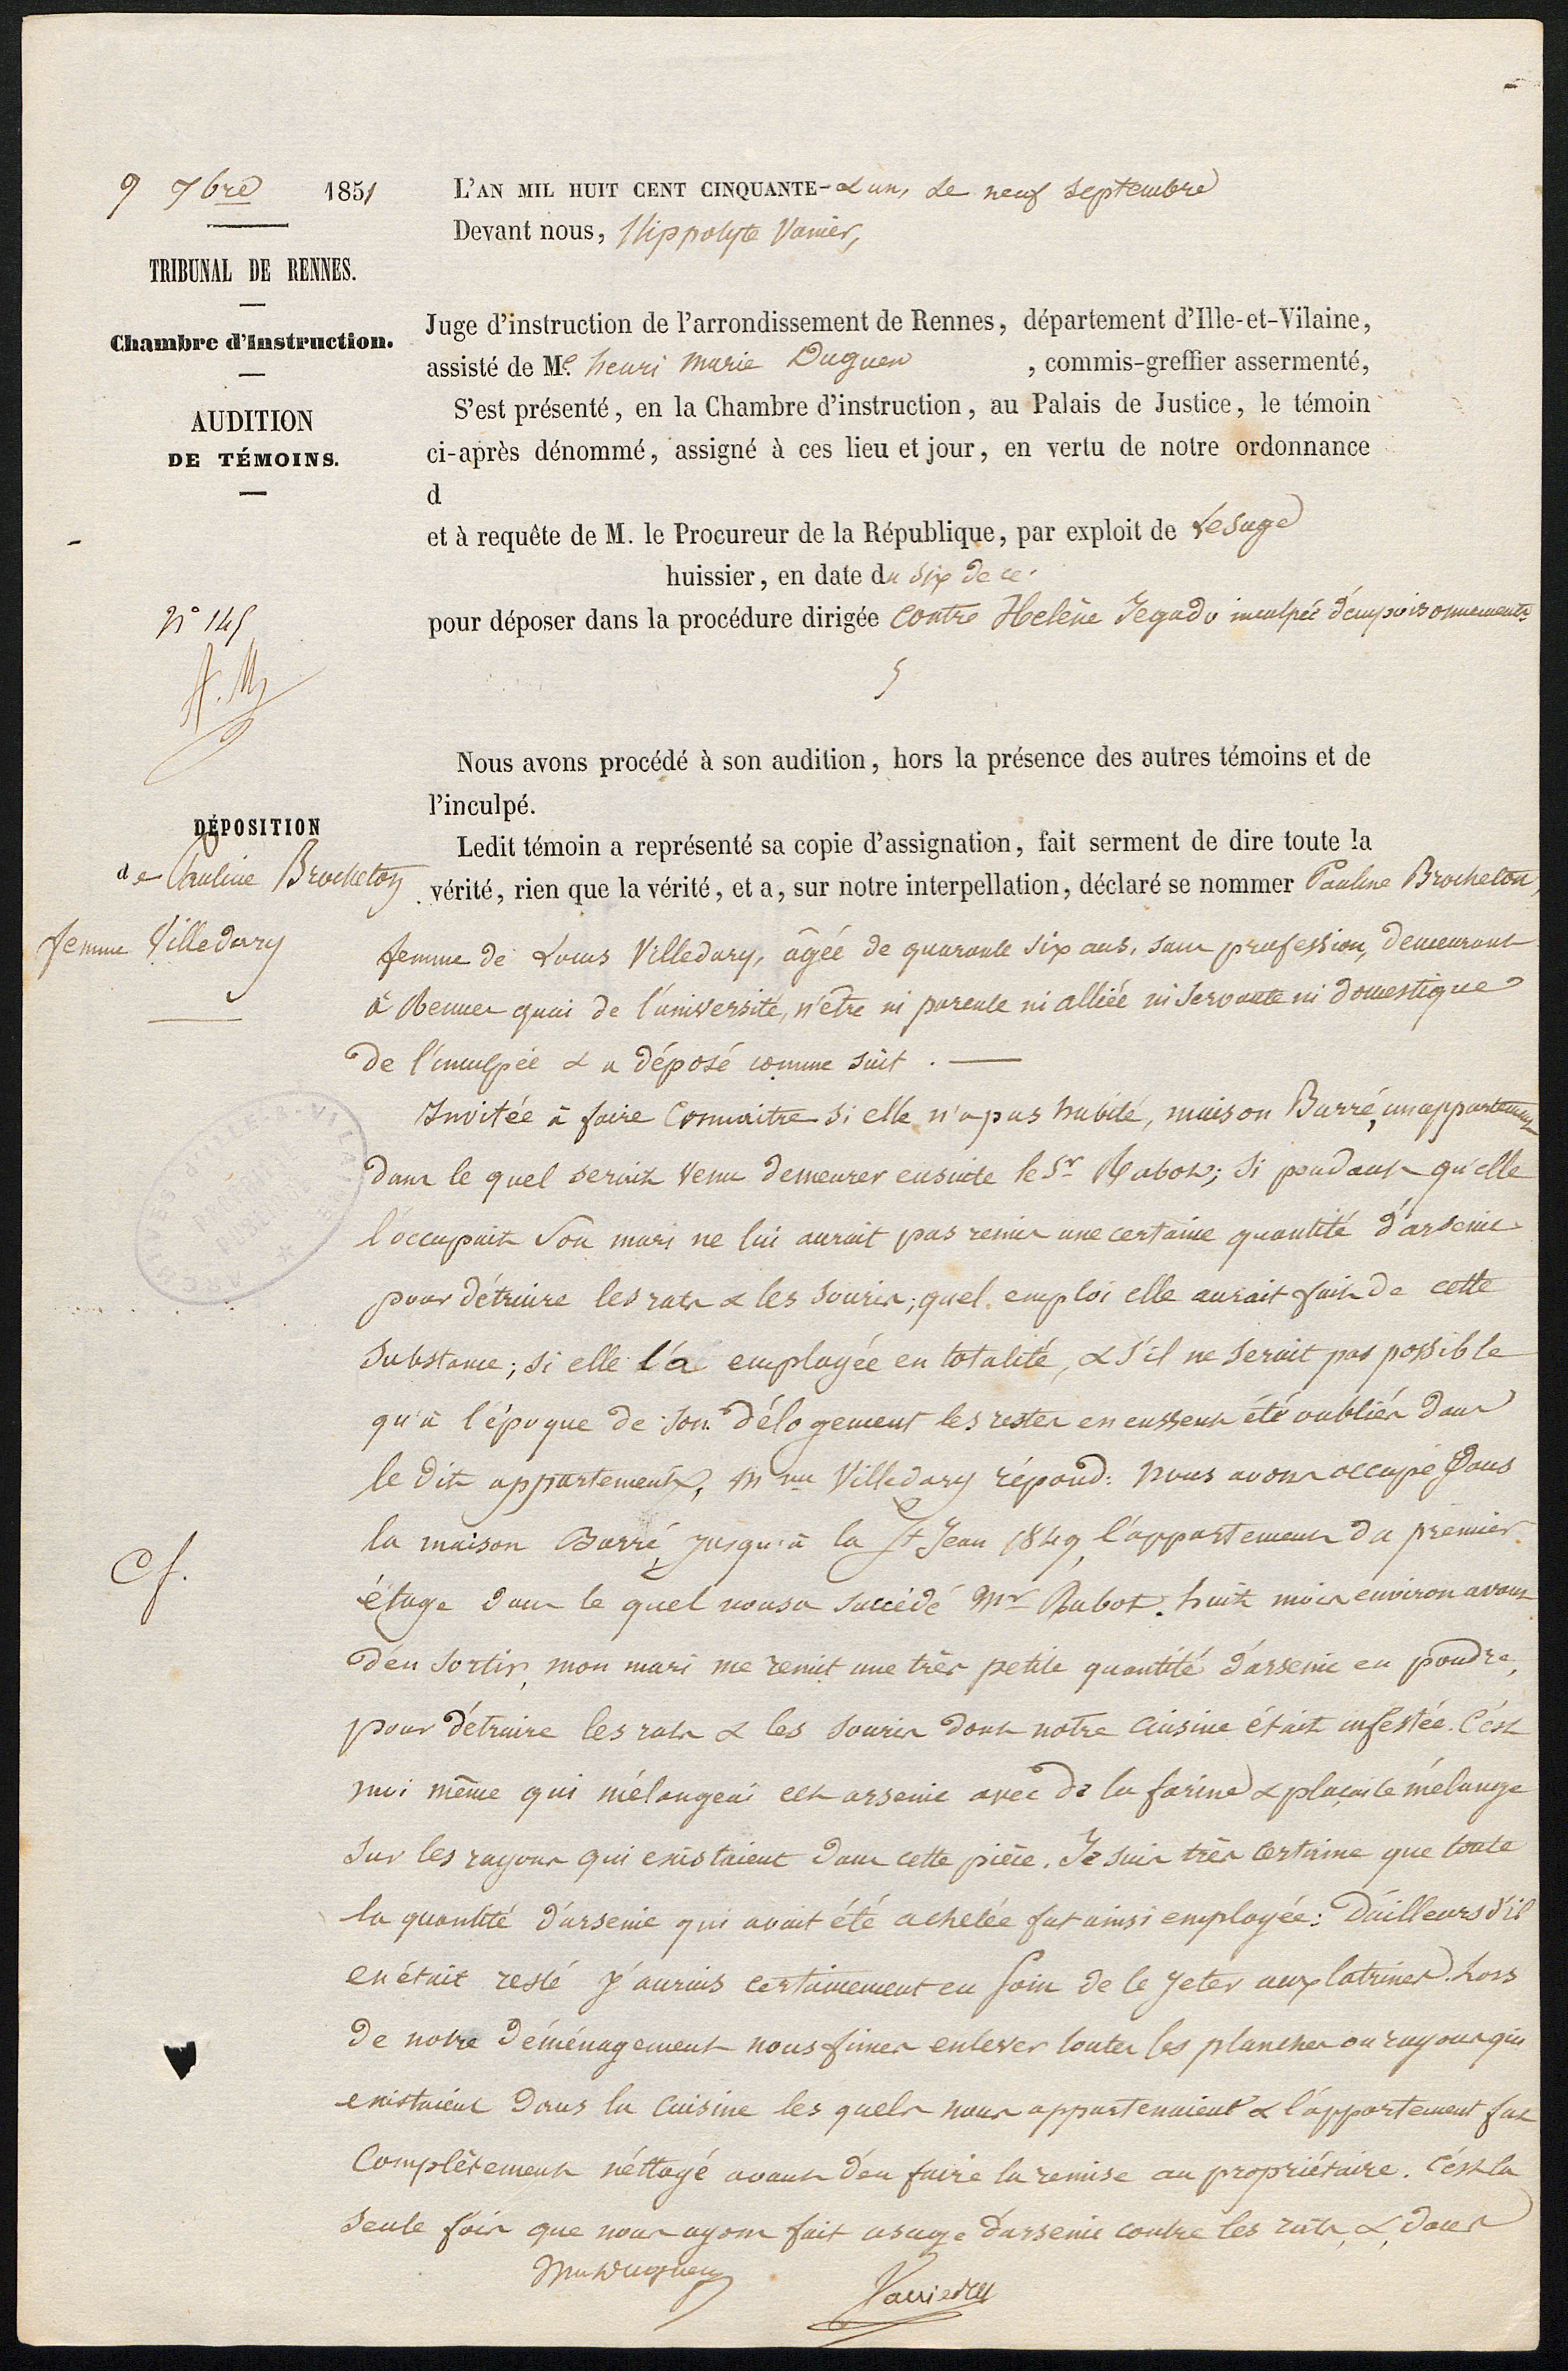 9 7bre 1851
TRIBUNAL DE RENNES.
Chambre d'Instruction.
AUDITION
DE TÉMOINS.
N° 145
DÉPOSITION
de Pauline Brocheton
femme Villedary
Cf.
L'AN MIL HUIT CENT CINQUANTE-& un, le neuf septembre
Devant nous, Hippolyte Vanier,
Juge d'instruction de l'arrondissement de Rennes, département d'Ille-et-Vilaine,
assisté de Me. henri Marie Duguen, commis-greffier assermenté,
S'est présenté, en la Chambre d'instruction, au Palais de Justice, le témoin
ci-après dénommé, assigné à ces lieu et jour, en vertu de notre ordonnance
d
et à requête de M. le Procureur de la République, par exploit de Lesage
huissier, en date du six de ce
pour déposer dans la procédure dirigée contre Helène Jegado inculpée d'empoisonnements
Nous avons procédé à son audition, hors la présence des autres témoins et de
l'inculpé.
Ledit témoin a représenté sa copie d'assignation, fait serment de dire toute la
vérité, rien que la vérité, et a, sur notre interpellation, déclaré se nommer Pauline Brocheton,
femme de Louis Villedary, âgée de quarante six ans, sans profession, demeurant
à Rennes quai de l'université, n'être ni parente ni alliée ni servante ni domestique
de l'inculpée & a déposé comme suit. —
Invitée à faire connaitre si elle n'a pas habité, maison Barré, un appartement
dans le quel serait venu demeurer ensuite le Sr Rabot; si pendant qu'elle
l'occupait son mari ne lui aurait pas remis une certaine quantité d'arsenic
pour détruire les rats & les souris; quel emploi elle aurait fait de cette
substance; si elle l'a employée en totalité, & s'il ne serait pas possible
qu'à l'époque de son délogement les restes en eussent été oubliés dans
le dit appartement, Mme Villedary répond: nous avons occupé dans
la maison Barré, jusqu'à la St Jean 1849, l'appartement du premier
étage dans le quel nous a succédé Mr Rabot. huit mois environ avant
d'en sortir, mon mari me remit une très petite quantité d'arsenic en poudre,
pour détruire les rats & les souris dont notre cuisine était infestée. C'est
moi même qui mélangeai cet arsenic avec de la farine & plaçai le mélange
sur les rayons qui existaient dans cette pièce. Je suis très certaine que toute
la quantité d'arsenic qui avait été achetée fut ainsi employée: D'ailleurs s'il
en était resté j'aurais certainement eu soin de le jeter aux latrines. Lors
de notre déménagement nous fimes enlever toutes les planches ou rayons qui
existaient dans la cuisine les quels nous appartenaient & l'appartement fut
complètement néttoyé avant d'en faire la remise au propriétaire. C'est la
seule fois que nous ayons fait usage d'arsenic contre les rats, & dans